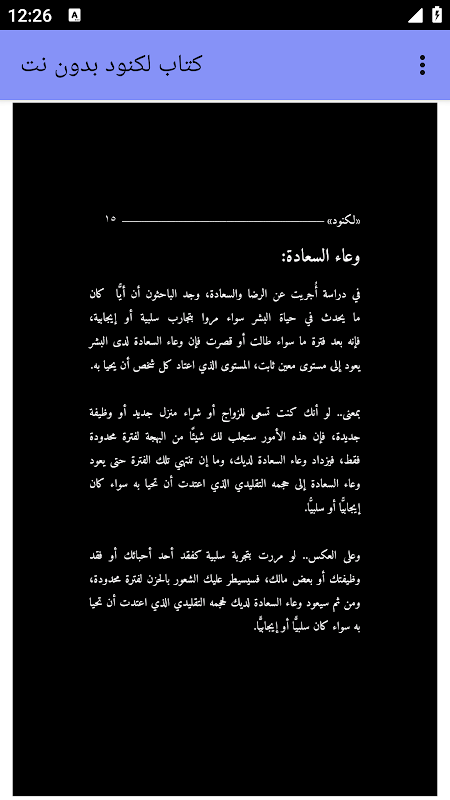 12:26
كتاب لكنود بدون نت
«لكنود» ١٥
وعاء السعادة:
في دراسة أُجريت عن الرضا والسعادة، وجد الباحثون أن أيًّا كان
ما يحدث في حياة البشر سواء مروا بتجارب سلبية أو إيجابية،
فإنه بعد فترة ما سواء طالت أو قصرت فإن وعاء السعادة لدى البشر
يعود إلى مستوى معين ثابت، المستوى الذي اعتاد كل شخص أن يحيا به.
بمعنى.. لو أنك كنت تسعى للزواج أو شراء منزل جديد أو وظيفة
جديدة، فإن هذه الأمور ستجلب لك شيئًا من البهجة لفترة محدودة
فقط، فيزداد وعاء السعادة لديك، وما إن تنتهي تلك الفترة حتى يعود
وعاء السعادة إلى حجمه التقليدي الذي اعتدت أن تحيا به سواء كان
إيجابيًّا أو سلبيًّا.
وعلى العكس.. لو مررت بتجربة سلبية كفقد أحد أحبائك أو فقد
وظيفتك أو بعض مالك، فسيسيطر عليك الشعور بالحزن لفترة محدودة،
ومن ثم سيعود وعاء السعادة لديك لحجمه التقليدي الذي اعتدت أن تحيا
به سواء كان سلبيًّا أو إيجابيًّا.